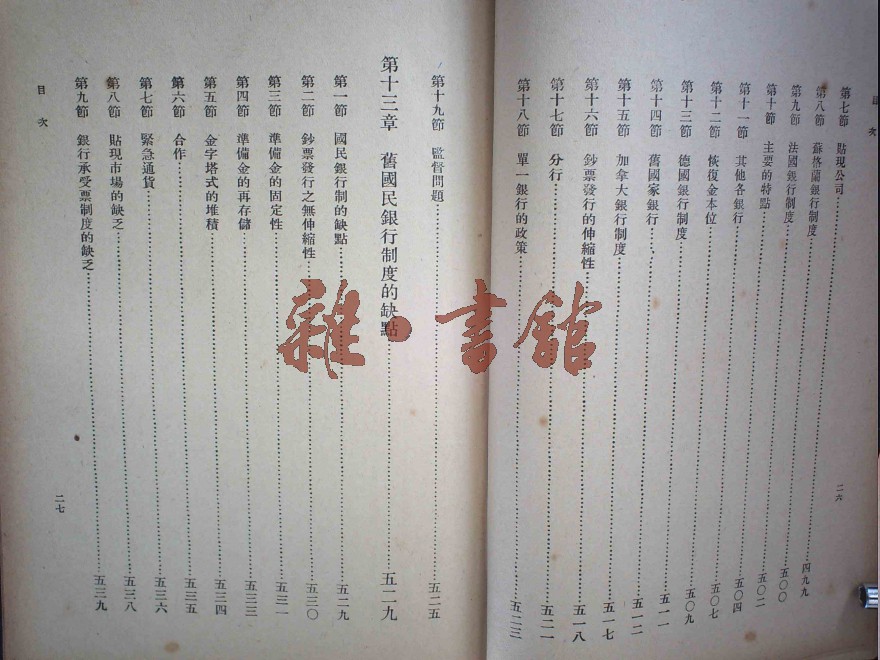 目次
第七節 貼現公司……四九九
第八節 蘇格蘭銀行制度……五〇〇
第九節 法國銀行制度……五〇二
第十節 主要的特點……五〇四
第十一節 其他各銀行……五〇七
第十二節 恢復金本位……五〇九
第十三節 德國銀行制度……五一一
第十四節 舊國家銀行……五一二
第十五節 加拿大銀行制度……五一七
第十六節 鈔票發行的伸縮性……五一八
第十七節 分行……五二一
第十八節 單一銀行的政策……五二三
二六
第十九節 監督問題……五二五
第十三章 舊國民銀行制度的缺點……五二九
第一節 國民銀行制的缺點……五二九
第二節 鈔票發行之無伸縮性……五三〇
第三節 準備金的固定性……五三一
第四節 準備金的再存儲……五三三
第五節 金字塔式的堆積……五三四
第六節 合作……五三五
第七節 緊急通貨……五三六
第八節 貼現市場的缺乏……五三八
第九節 銀行承受票制度的缺乏……五三九
目次
二七
雜·書館